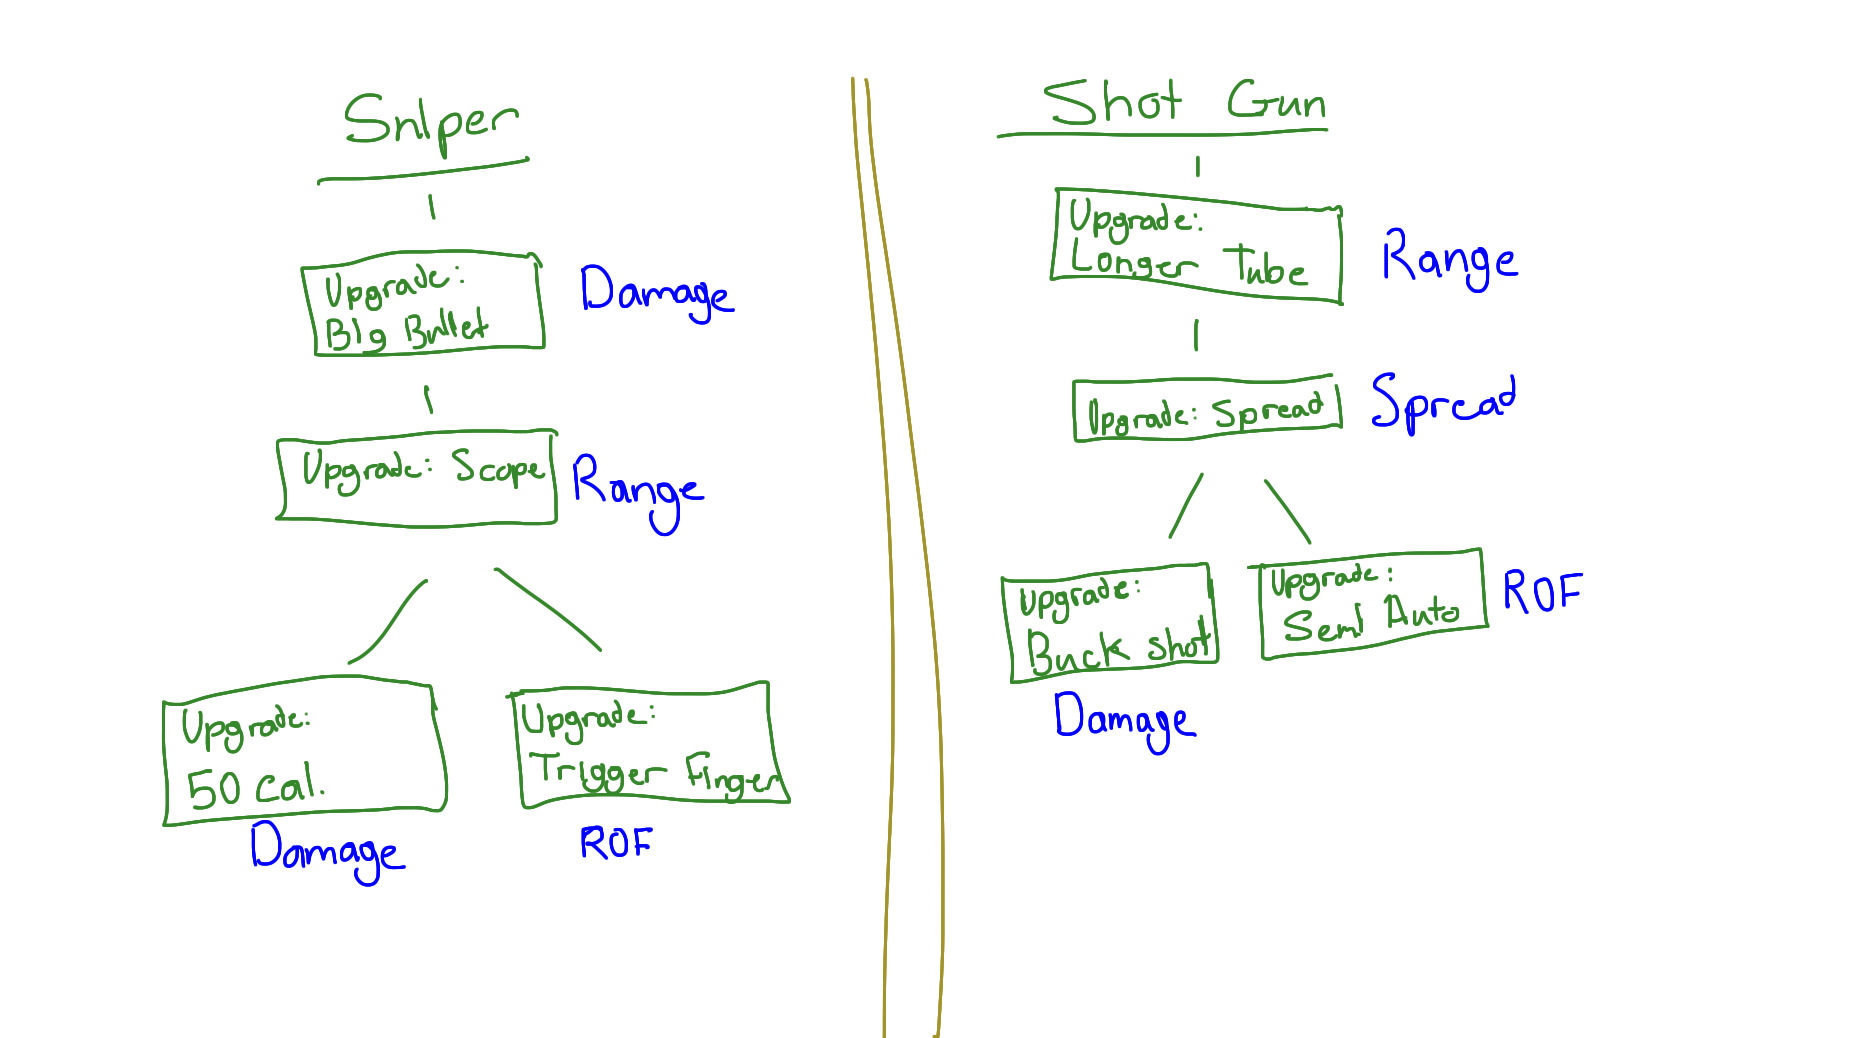 Sniper
Upgrade:
Big Bullet
Damage
Upgrade: Scope
Range
Upgrade:
50 Cal.
Damage
Upgrade:
Trigger Finger
ROF
Shot Gun
Upgrade:
Longer Tube
Range
Upgrade: Spread
Spread
Upgrade:
Buck shot
Damage
Upgrade:
Semi Auto
ROF